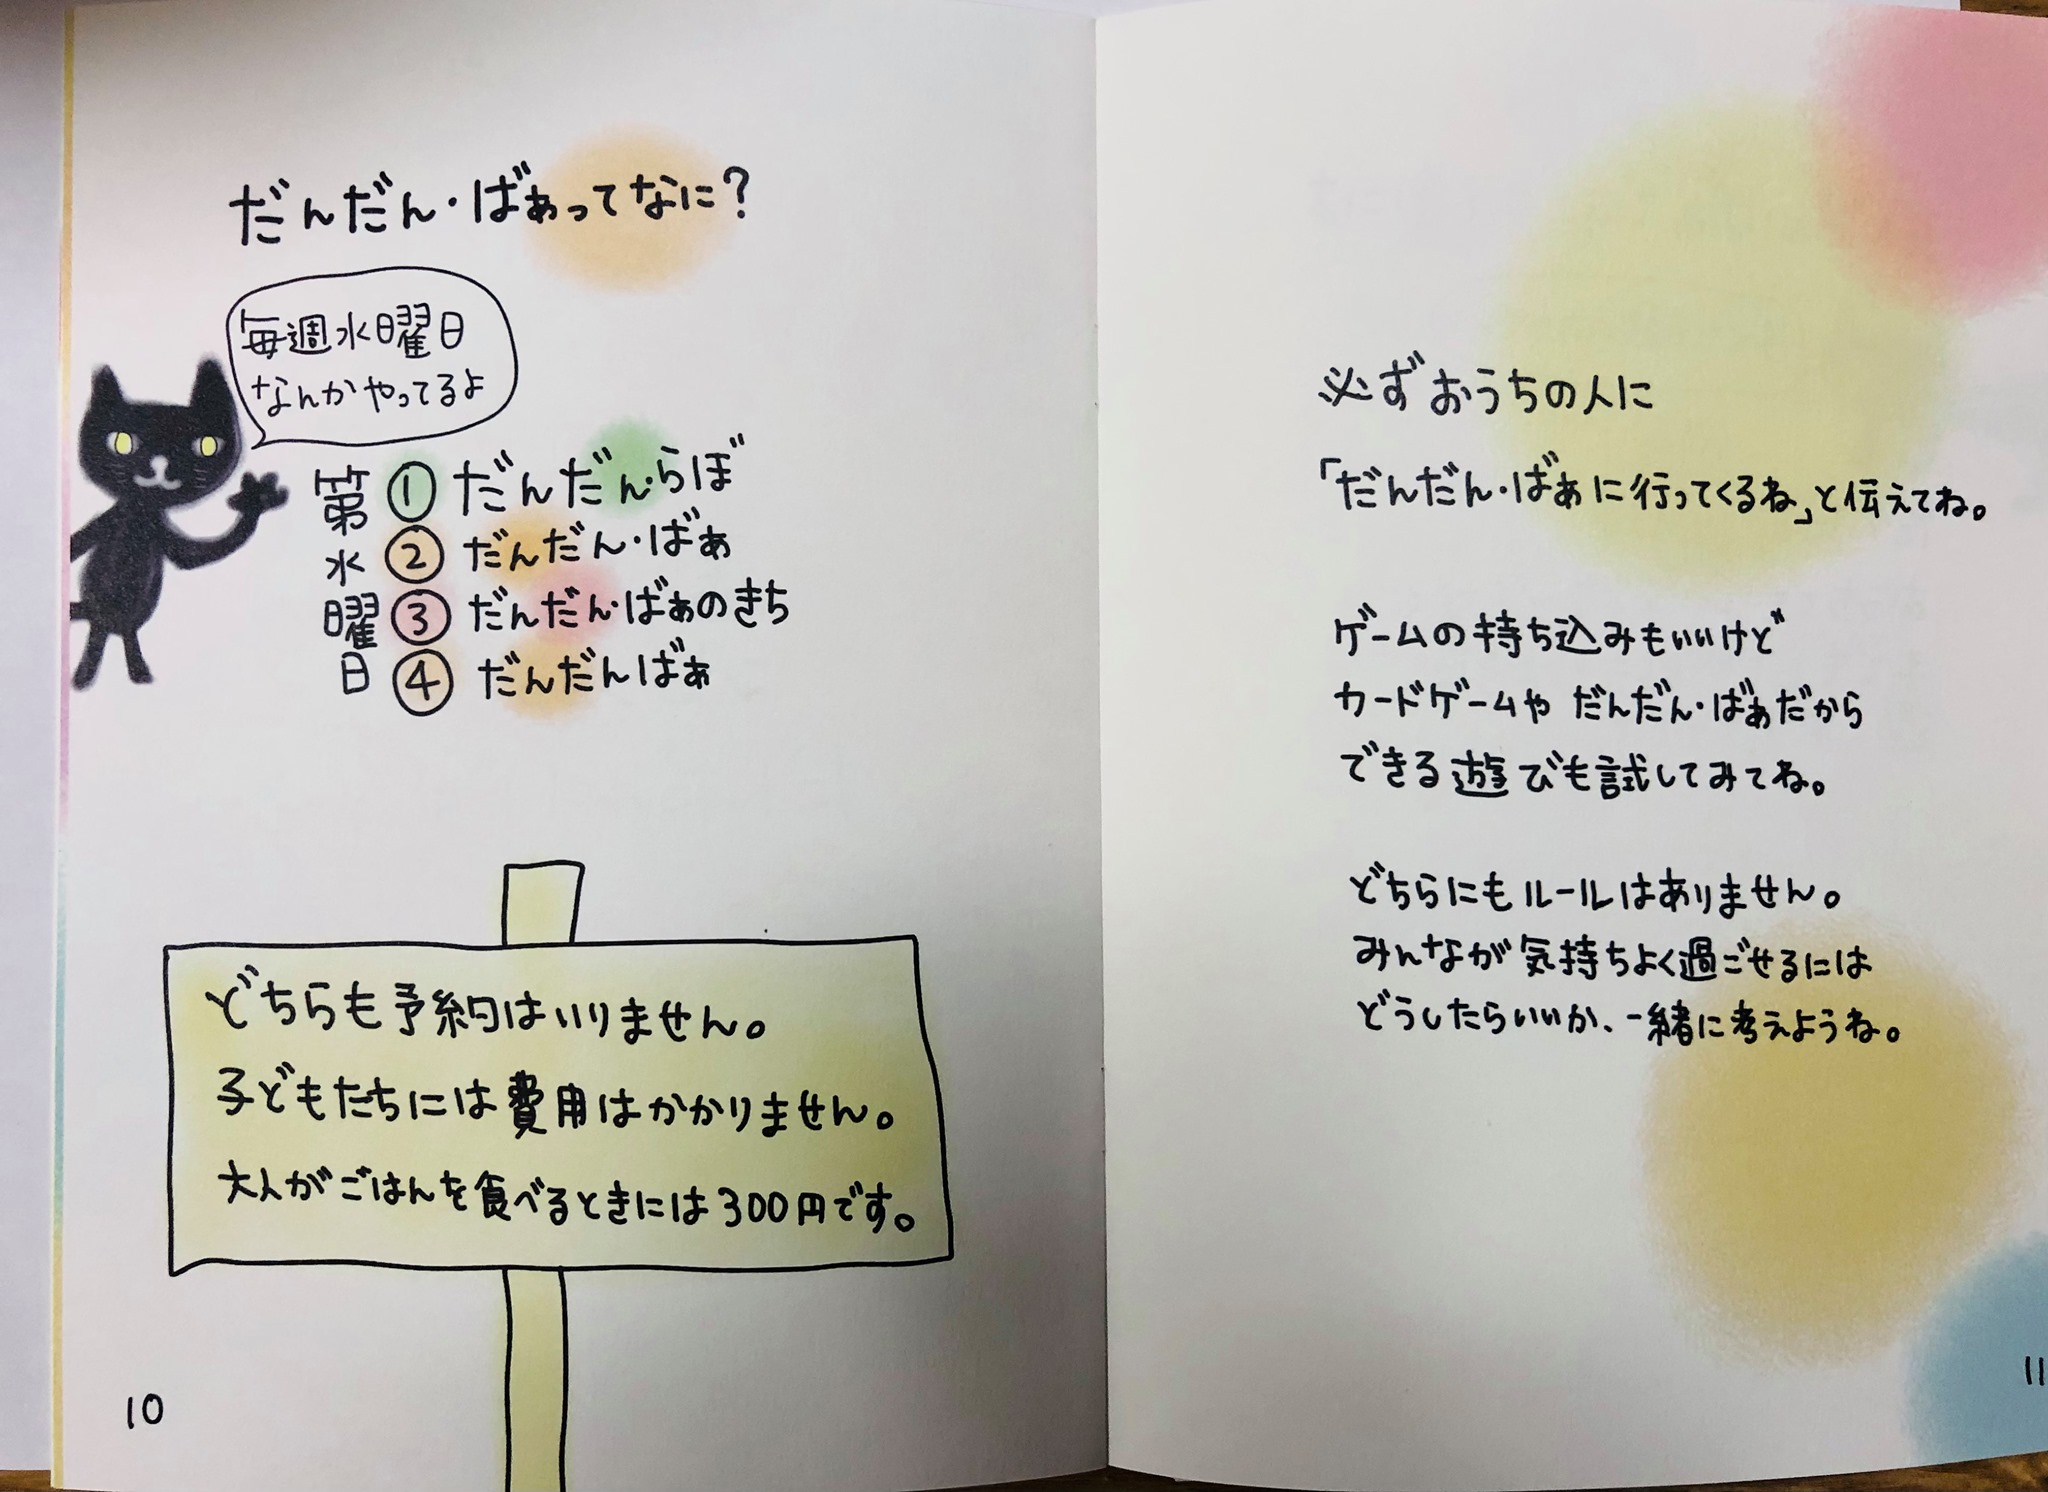 だんだん・ばぁってなに?
毎週水曜日
なんかやってるよ
第水曜日
① だんだん・らぼ
② だんだん・ばぁ
③ だんだん・ばぁのきち
④ だんだんばぁ
どちらも予約はいりません。
子どもたちには費用はかかりません。
大人がごはんを食べるときには300円です。
10
必ずおうちの人に
「だんだん・ばぁに行ってくるね」と伝えてね。
ゲームの持ち込みもいいけど
カードゲームや だんだん・ばぁだから
できる遊びも試してみてね。
どちらにもルールはありません。
みんなが気持ちよく過ごせるには
どうしたらいいか、一緒に考えようね。
11